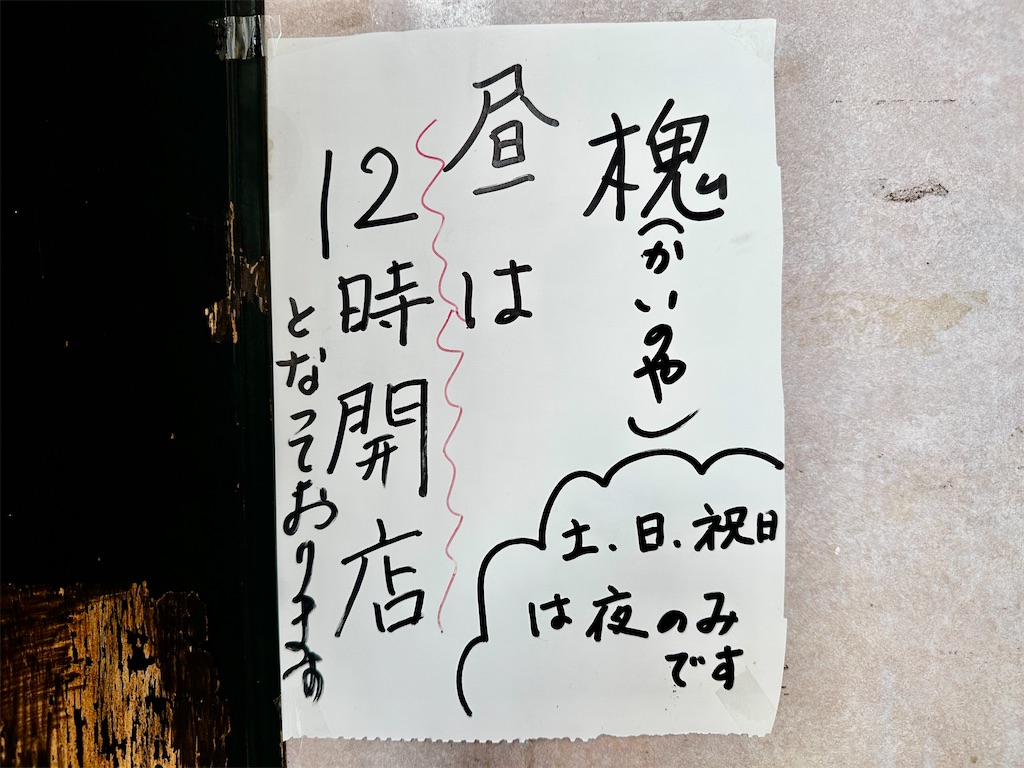 槐(かいのや)
昼は
12時開店
となっております
土、日、祝日
は夜のみ
です